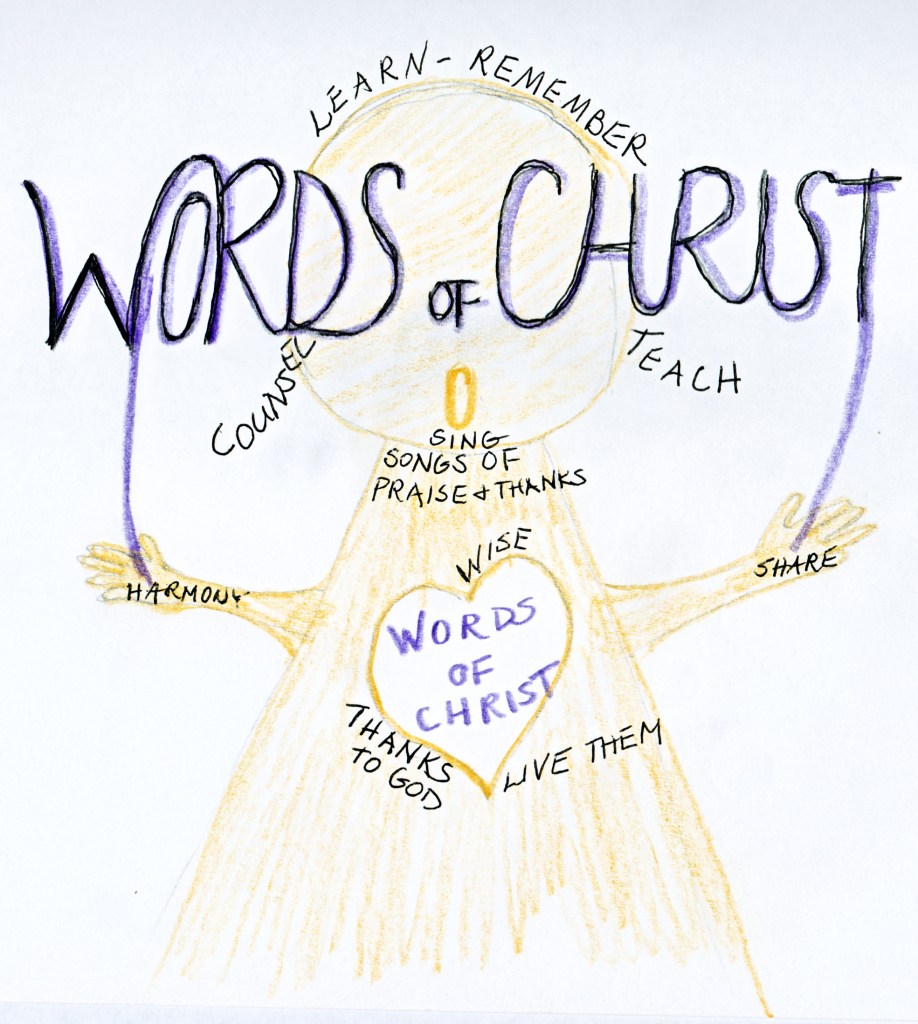 LEARN - REMEMBER
WORDS OF CHRIST
COUNSEL
TEACH
SING
SONGS OF
PRAISE + THANKS
HARMONY
SHARE
WISE
WORDS
OF
CHRIST
THANKS
TO GOD
LIVE THEM